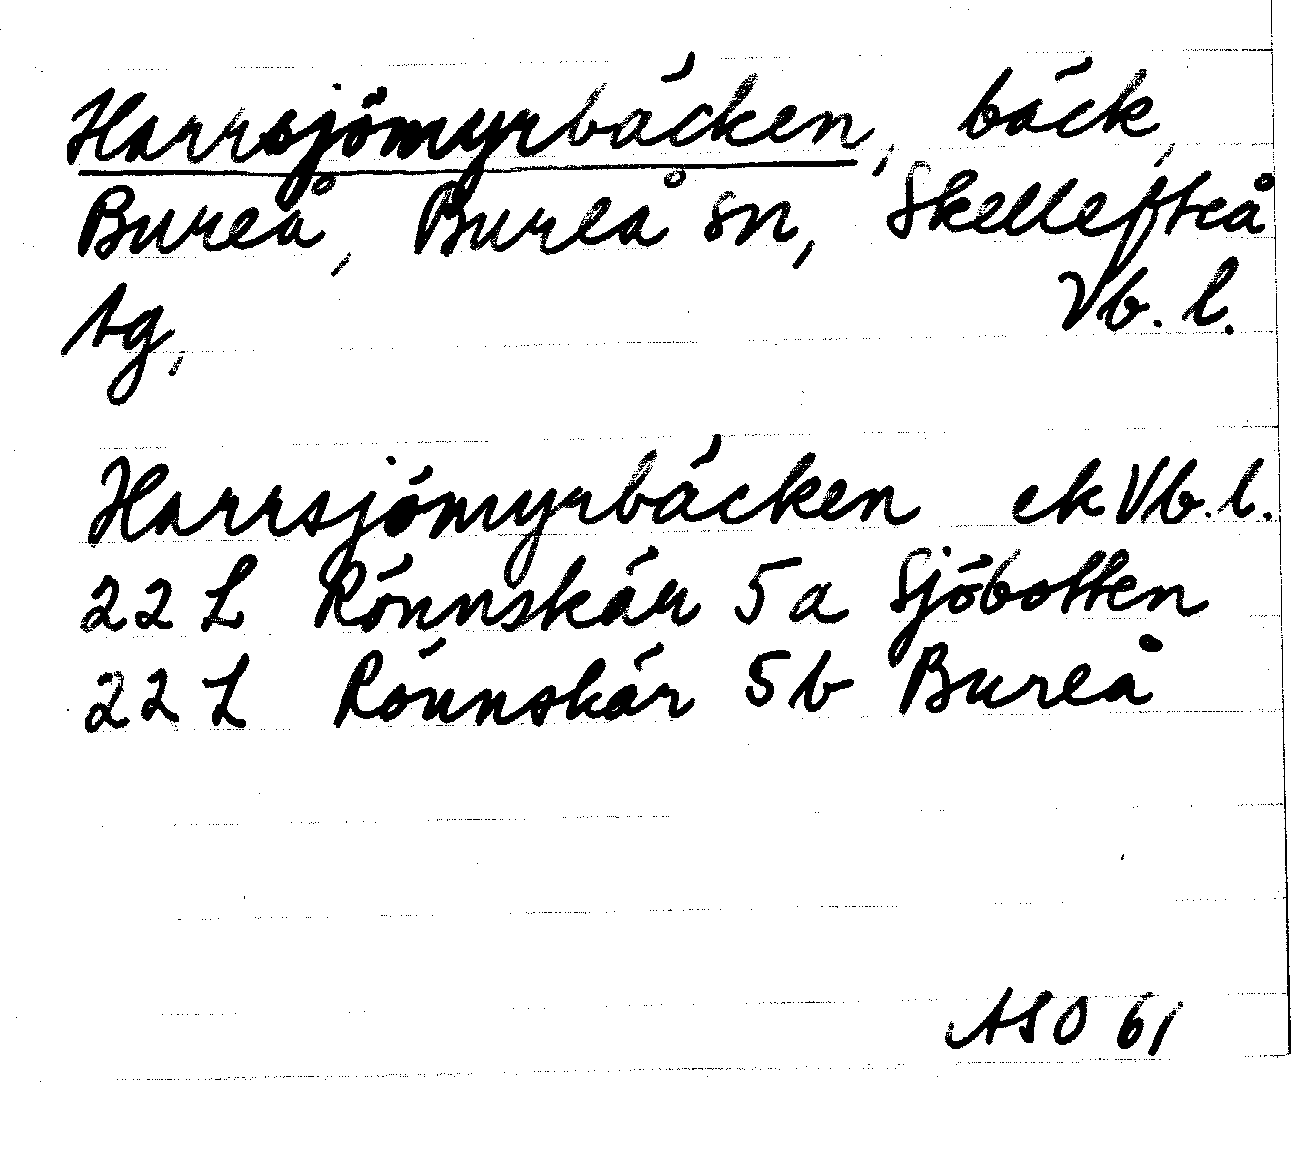 Harrsjömyrbäcken, bäck,
Bureå, Bureå sn, Skellefteå
tg, Vb. l.
Harrsjömyrbäcken ek Vb. l.
22 L Rönnskär 5 a Sjöbotten
22 L Rönnskär 5 b Bureå
ASO 61